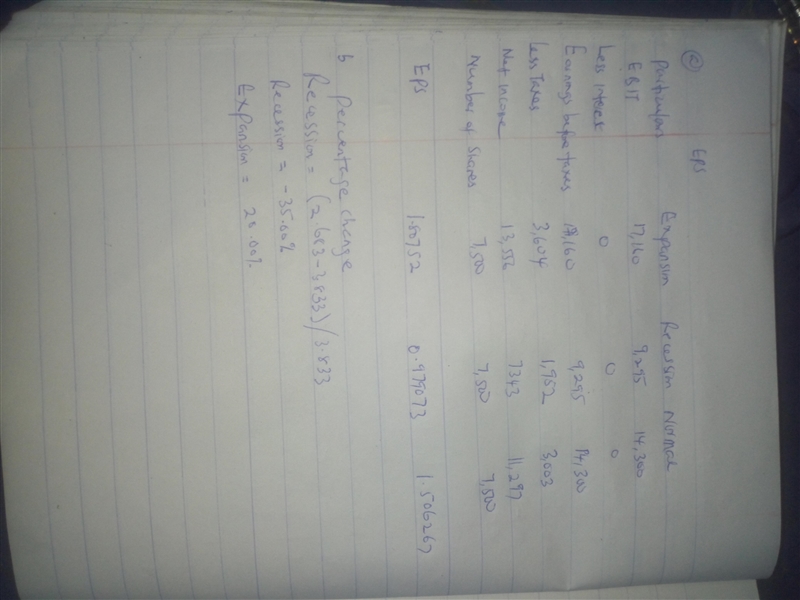 (a) EPS
Particulars Expansion Recession Normal
EBIT 17,160 9,295 14,300
Less interest 0 0 0
Earnings before taxes 17,160 9,295 14,300
Less Taxes 3,604 1,952 3,003
Net Income 13,556 7343 11,297
Number of Shares 7,500 7,500 7,500
EPS 1.80752 0.979073 1.506267
b percentage change
Recession = (2.683-3,833)/3.833
Recession = -35.00%
Expansion = 20.00%